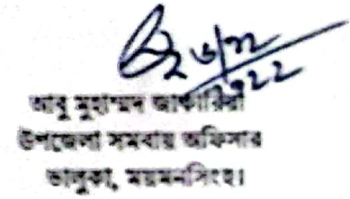 আবু মুহাম্মদ জাকারিয়া
উপজেলা সমবায় অফিসার
ভালুকা, ময়মনসিংহ।